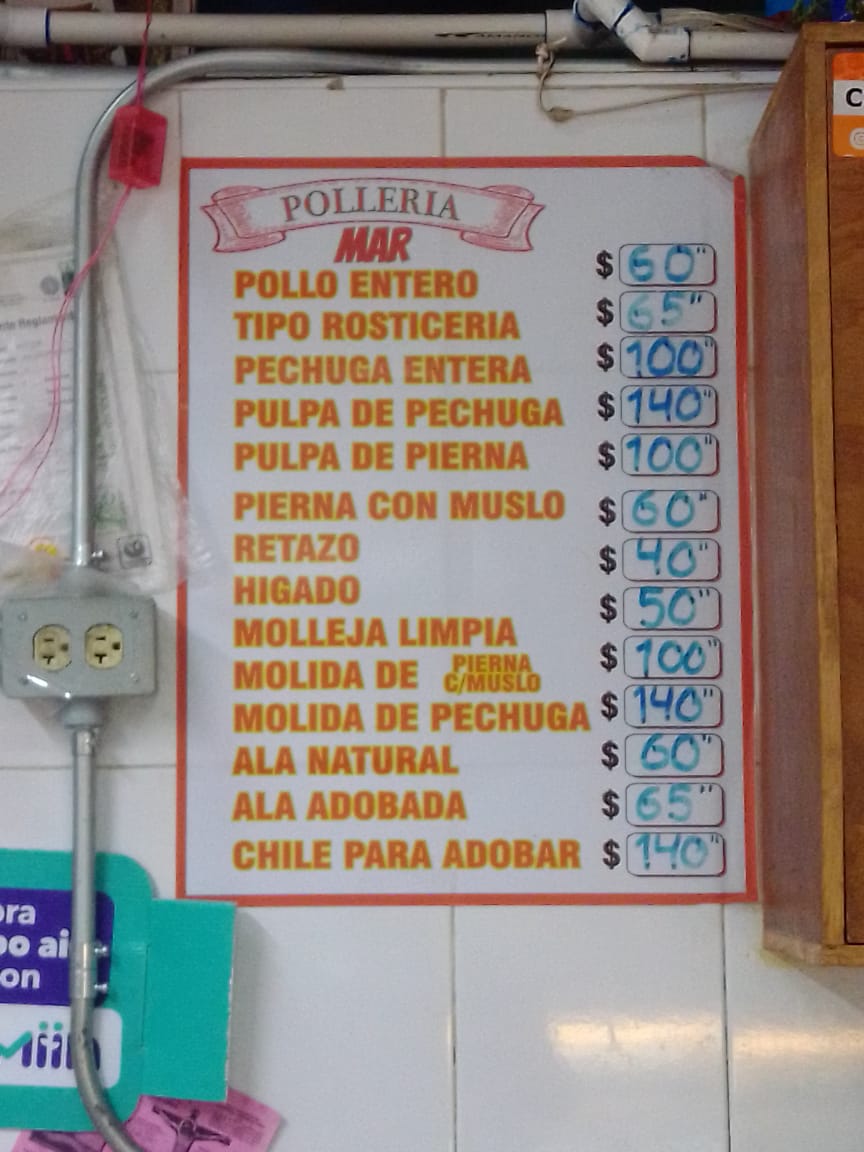 POLLERIA
MAR
POLLO ENTERO
TIPO ROSTICERIA
PECHUGA ENTERA
PULPA DE PECHUGA
PULPA DE PIERNA
PIERNA CON MUSLO
RETAZO
HIGADO
MOLLEJA LIMPIA
MOLIDA DE PIERNA C/MUSLO
MOLIDA DE PECHUGA
ALA NATURAL
ALA ADOBADA
CHILE PARA ADOBAR
$ 60"
$ 65"
$ 100"
$ 140"
$ 100"
$ 60"
$ 40"
$ 50"
$ 100"
$ 140"
$ 60"
$ 65"
$ 140"